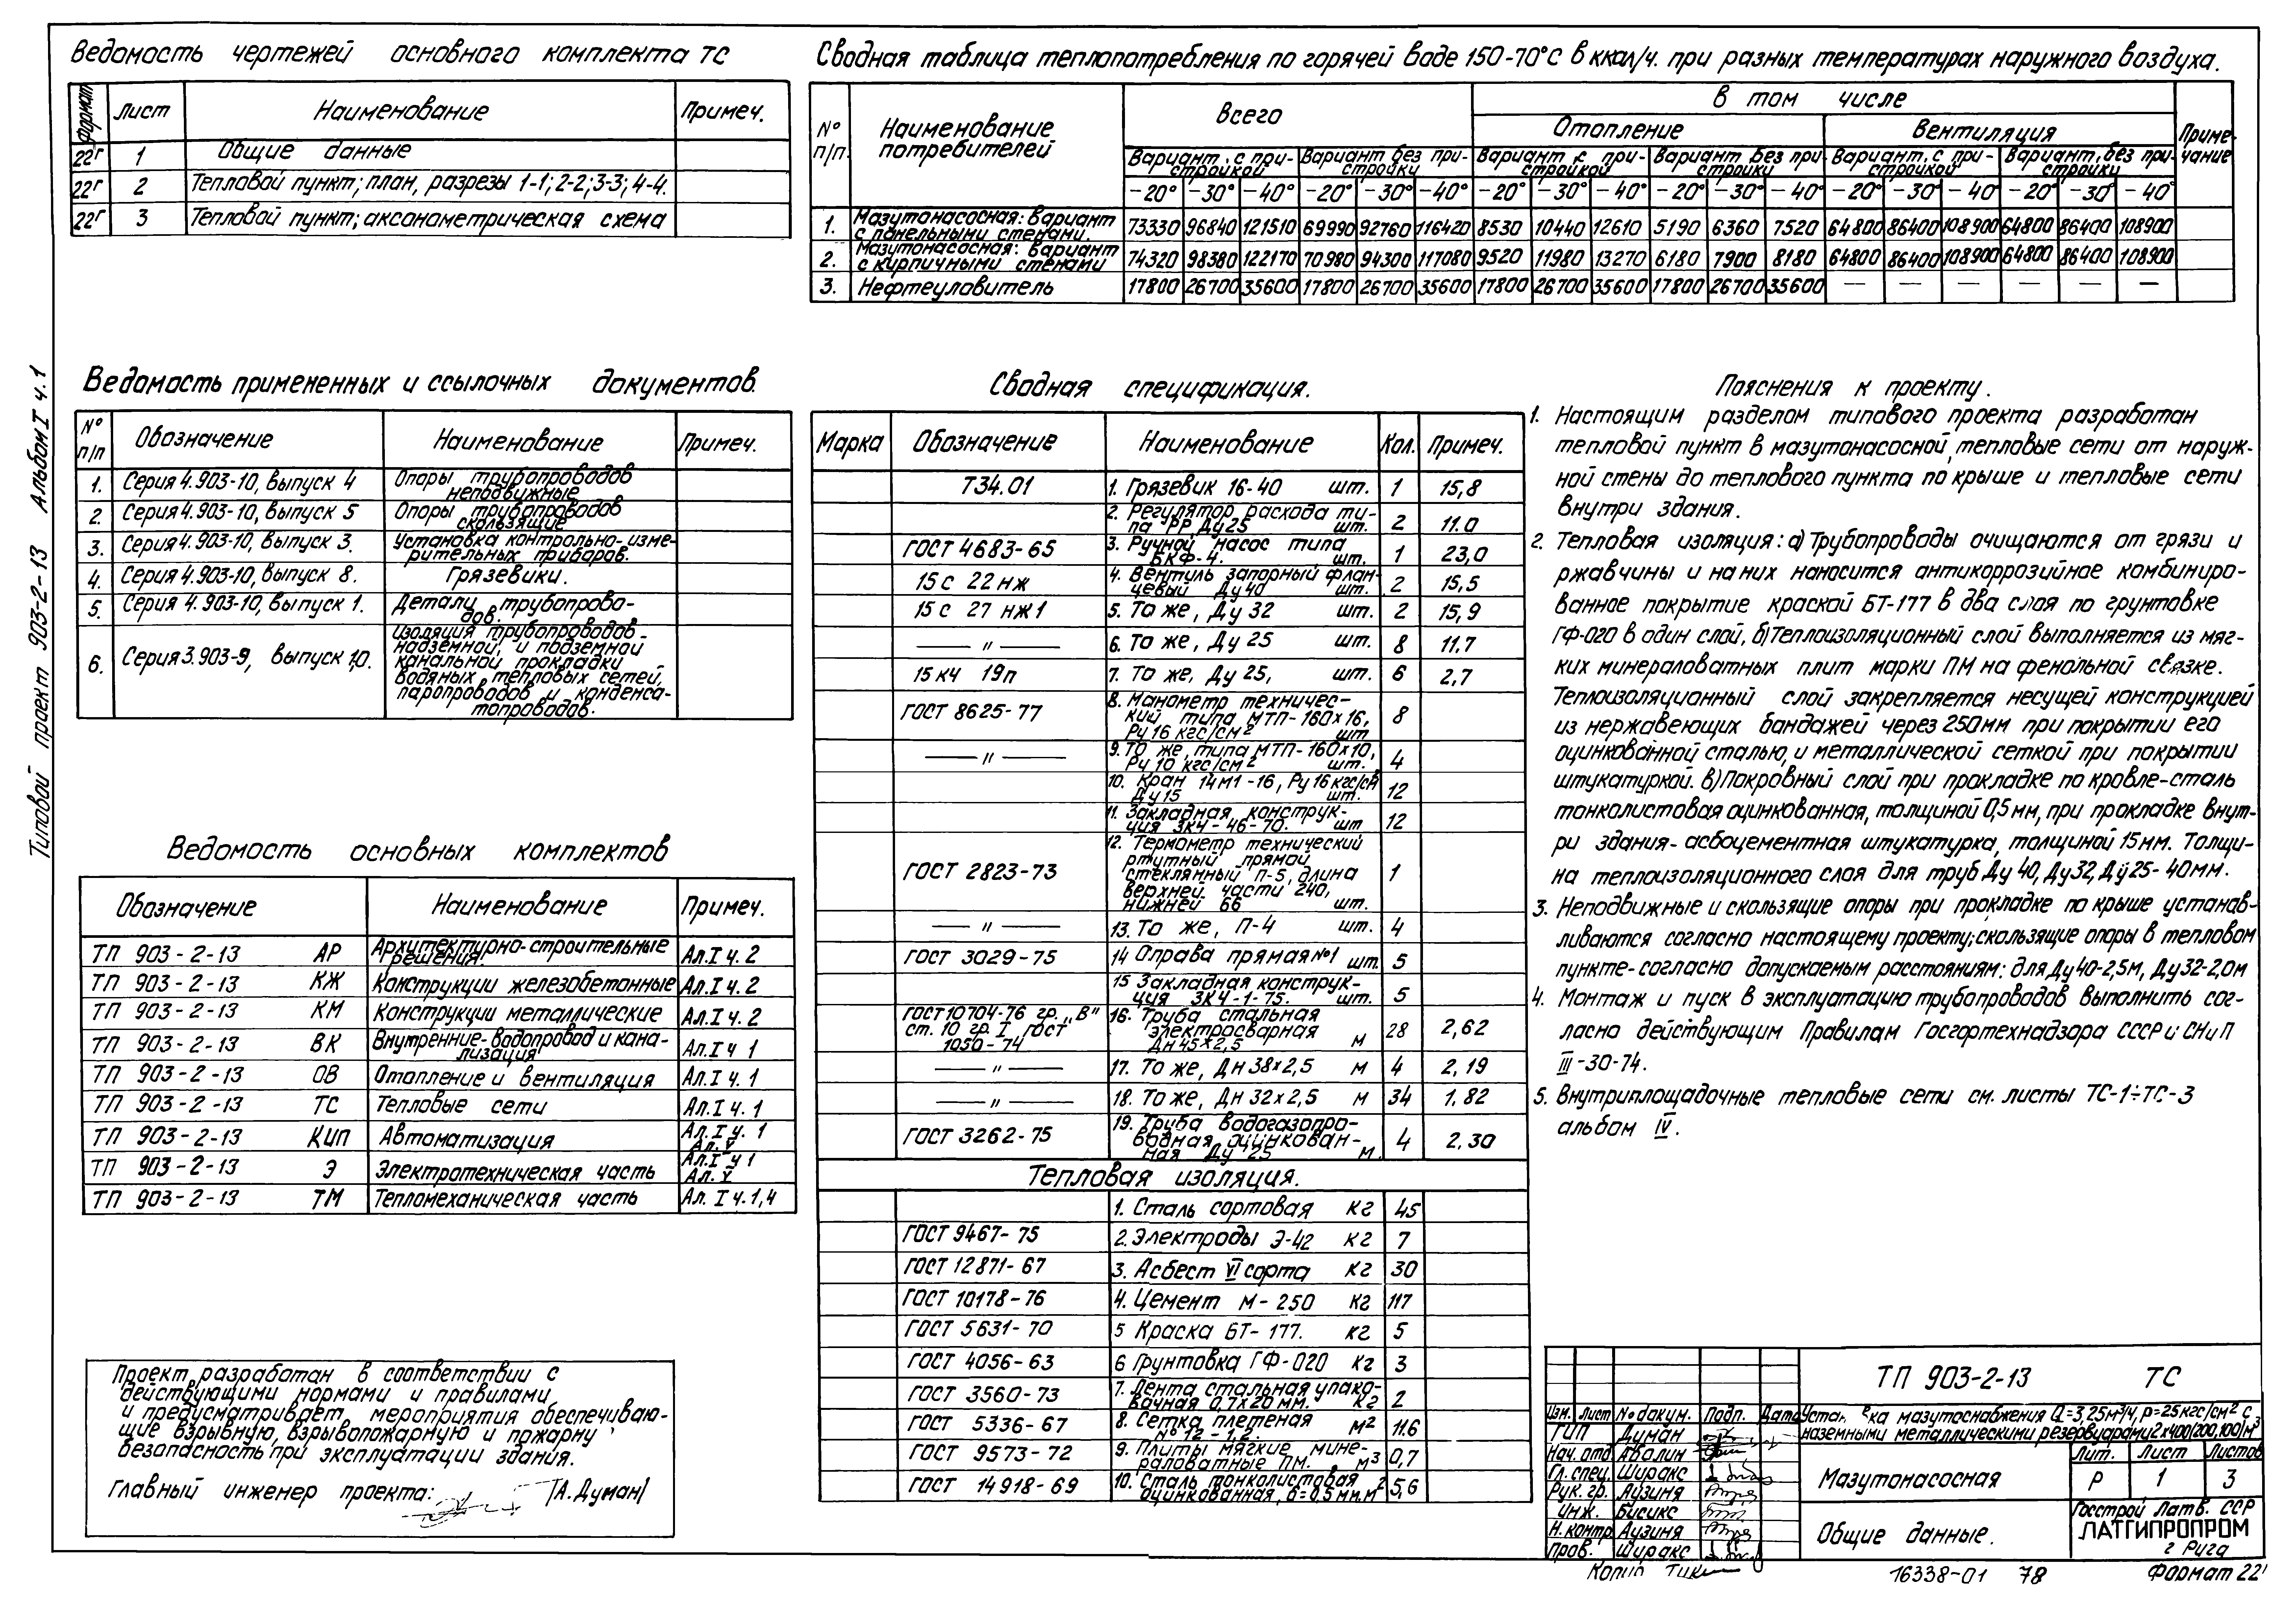 Типовой проект 903-2-13 Альбом I ч.1
Ведомость чертежей основного комплекта ТС
Формат Лист Наименование Примеч.
22г 1 Общие данные
22г 2 Тепловой пункт; план, разрезы 1-1; 2-2; 3-3; 4-4.
22г 3 Тепловой пункт; аксонометрическая схема
Сводная таблица теплопотребления по горячей воде 150-70°С в ккал/ч. при разных температурах наружного воздуха.
№ п/п. Наименование потребителей Всего в том числе Приме-чание
Отопление Вентиляция
Вариант с при-стройкой Вариант без при-стройки Вариант с при-стройкой Вариант без при-стройки Вариант с при-стройкой Вариант без при-стройки
-20° -30° -40° -20° -30° -40° -20° -30° -40° -20° -30° -40° -20° -30° -40° -20° -30° -40°
1. Мазутонасосная: вариант с панельными стенами. 73330 96840 121510 69990 92760 116420 8530 10440 12610 5190 6360 7520 64800 86400 108900 64800 86400 108900
2. Мазутонасосная: вариант с кирпичными стенами 74320 98380 122170 70980 94300 117080 9520 11980 13270 6180 7900 8180 64800 86400 108900 64800 86400 108900
3. Нефтеуловитель 17800 26700 35600 17800 26700 35600 17800 26700 35600 17800 26700 35600 — — — — — —
Ведомость примененных и ссылочных документов.
№ п/п Обозначение Наименование Примеч.
1. Серия 4.903-10, выпуск 4 Опоры трубопроводов неподвижные
2. Серия 4.903-10, выпуск 5 Опоры трубопроводов скользящие
3. Серия 4.903-10, выпуск 3. Установка контрольно-изме-рительных приборов.
4. Серия 4.903-10, выпуск 8. Грязевики.
5. Серия 4.903-10, выпуск 1. Детали трубопрово-дов.
6. Серия 3.903-9, выпуск 1,0. Изоляция трубопроводов
надземной, и подземной
канальной прокладки
водяных тепловых сетей,
паропроводов и конденса-
топроводов.
Ведомость основных комплектов
Обозначение Наименование Примеч.
ТП 903-2-13 АР Архитектурно-строительные решения. Ал.I ч.2
ТП 903-2-13 КЖ Конструкции железобетонные Ал.I ч.2
ТП 903-2-13 КМ Конструкции металлические Ал.I ч.2
ТП 903-2-13 ВК Внутренние-водопровод и кана-лизация Ал.I ч 1
ТП 903-2-13 ОВ Отопление и вентиляция Ал.I ч.1
ТП 903-2-13 ТС Тепловые сети Ал.I ч.1
ТП 903-2-13 КИП Автоматизация Ал.I ч.1 Ал.V
ТП 903-2-13 Э Электротехническая часть Ал.I ч 1 Ал.V
ТП 903-2-13 ТМ Тепломеханическая часть Ал. I ч.1,4
Проект разработан в соответствии с
действующими нормами и правилами
и предусматривает мероприятия обеспечиваю-
щие взрывную, взрывопожарную и пожарну
безопасность при эксплуатации здания.
Главный инженер проекта: /А.Думан/
Сводная спецификация.
Марка Обозначение Наименование Кол. Примеч.
Т34.01 1. Грязевик 16-40 шт. 1 15,8
2. Регулятор расхода ти-па РР Ду25 шт. 2 11.0
ГОСТ 4683-65 3. Ручной насос типа БКФ-4. шт. 1 23,0
15 с 22 нж 4. Вентиль запорный флан-цевый Ду40 шт. 2 15,5
15 с 27 нж1 5. То же, Ду 32 шт. 2 15,9
—〃— 6. То же, Ду 25 шт. 8 11,7
15 кч 19п 7. То же, Ду 25, шт. 6 2,7
ГОСТ 8625-77 8. Манометр техничес-кий типа МТП-160х16, Ру 16 кгс/см² шт 8
—〃— 9. То же, типа МТП-160х10, Ру 10 кгс/см² шт. 4
10. Кран 14м1-16, Ру 16 кгс/см Ду15 шт. 12
11. Закладная конструк-ция ЗК4-46-70. шт 12
ГОСТ 2823-73 12. Термометр технический ртутный прямой стеклянный П-5, длина верхней части 240, нижней 66 шт. 1
—〃— 13. То же, П-4 шт. 4
ГОСТ 3029-75 14 Оправа прямая №1 шт 5
15 Закладная конструк-ция ЗК4-1-75. шт. 5
ГОСТ 10704-76 гр. „В" ст. 10 гр. I ГОСТ 1050-74 16. Труба стальная электросварная Дн45х2,5 м 28 2,62
—〃— 17. То же, Дн 38х2,5 м 4 2,19
—〃— 18. То же, Дн 32х2,5 м 34 1.82
ГОСТ 3262-75 19. Труба водогазопро-водная оцинкован-ная Ду 25 м. 4 2,30
Тепловая изоляция.
1. Сталь сортовая кг 45
ГОСТ 9467-75 2. Электроды Э-42 кг 7
ГОСТ 12871-67 3. Асбест VI сорта кг 30
ГОСТ 10178-76 4. Цемент М-250 кг 117
ГОСТ 5631-70 5 Краска БТ-177. кг 5
ГОСТ 4056-63 6 Грунтовка ГФ-020 кг 3
ГОСТ 3560-73 7. Лента стальная упако-вочная 0,7х20 мм. кг 2
ГОСТ 5336-67 8. Сетка плетеная №12-1,2. м² 11.6
ГОСТ 9573-72 9. Плиты мягкие мине-раловатные ПМ. м³ 0,7
ГОСТ 14918-69 10. Сталь тонколистовая оцинкованная, δ=0,5 мм. м² 5,6
Пояснения к проекту.
1. Настоящим разделом типового проекта разработан
тепловой пункт в мазутонасосной, тепловые сети от наруж-
ной стены до теплового пункта по крыше и тепловые сети
внутри здания.
2. Тепловая изоляция: а) Трубопроводы очищаются от грязи и
ржавчины и на них наносится антикоррозийное комбиниро-
ванное покрытие краской БТ-177 в два слоя по грунтовке
ГФ-020 в один слой, б) Теплоизоляционный слой выполняется из мяг-
ких минераловатных плит марки ПМ на фенольной связке.
Теплоизоляционный слой закрепляется несущей конструкцией
из нержавеющих бандажей через 250мм при покрытии его
оцинкованной сталью, и металлической сеткой при покрытии
штукатуркой. в) Покровный слой при прокладке по кровле-сталь
тонколистовая оцинкованная, толщиной 0,5 мм, при прокладке внут-
ри здания-асбоцементная штукатурка, толщиной 15мм. Толщи-
на теплоизоляционного слоя для труб Ду 40, Ду32, Ду25-40мм.
3. Неподвижные и скользящие опоры при прокладке по крыше устанав-
ливаются согласно настоящему проекту; скользящие опоры в тепловом
пункте-согласно допускаемым расстояниям: для Ду40-2,5м, Ду32-2,0м
4. Монтаж и пуск в эксплуатацию трубопроводов выполнить сог-
ласно действующим Правилам Госгортехнадзора СССР и СНиП
III-30-74.
5. Внутриплощадочные тепловые сети см. листы ТС-1÷ТС-3
альбом IV.
ТП 903-2-13 ТС
Изм. Лист № докум. Подп. Дата
ГИП Думан
Нач. отд Аболин
Гл. спец. Ширакс
Рук. гр. Аузиня
Инж. Бисикс
Н. контр Аузиня
Пров. Ширакс
Устан вка мазутоснабжения Q=3,25м³/ч, р=25кгс/см² с
наземными металлическими резервуарами 2х400(200,100)м³
Мазутонасосная
Лит. Лист Листов
Р 1 3
Общие данные.
Госстрой Латв. ССР
ЛАТГИПРОПРОМ
г Рига
Копир 16338-01 78 Формат 22г